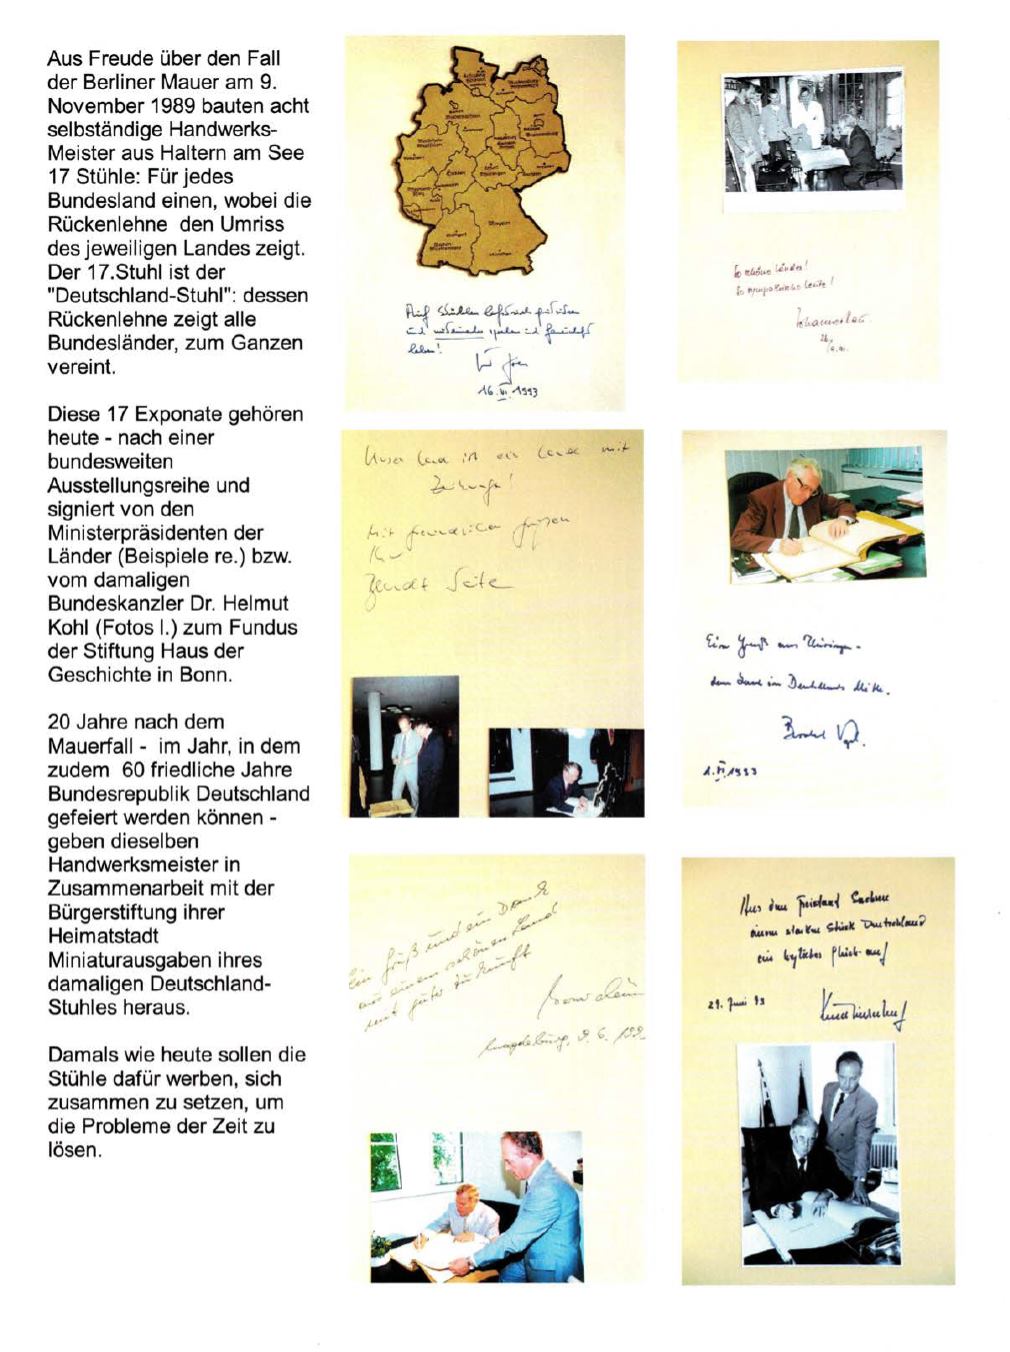 Aus Freude über den Fall
der Berliner Mauer am 9.
November 1989 bauten acht
selbständige Handwerks-
Meister aus Haltern am See
17 Stühle: Für jedes
Bundesland einen, wobei die
Rückenlehne  den Umriss
des jeweiligen Landes zeigt.
Der 17.Stuhl ist der
"Deutschland-Stuhl": dessen
Rückenlehne zeigt alle
Bundesländer, zum Ganzen
vereint.
Diese 17 Exponate gehören
heute - nach einer
bundesweiten
Ausstellungsreihe und
signiert von den
Ministerpräsidenten der
Länder (Beispiele re.) bzw.
vom damaligen
Bundeskanzler Dr. Helmut
Kohl (Fotos l.) zum Fundus
der Stiftung Haus der
Geschichte in Bonn.
20 Jahre nach dem
Mauerfall -  im Jahr, in dem
zudem  60 friedliche Jahre
Bundesrepublik Deutschland
gefeiert werden können -
geben dieselben
Handwerksmeister in
Zusammenarbeit mit der
Bürgerstiftung ihrer
Heimatstadt
Miniaturausgaben ihres
damaligen Deutschland-
Stuhles heraus.
Damals wie heute sollen die
Stühle dafür werben, sich
zusammen zu setzen, um
die Probleme der Zeit zu
lösen.
Auf Stühlen
und miteinander
leben!
16.VI.1993
So schöne Länder!
So sympathische Leute!
Johannes Rau
Unser Land ist ein Land mit
Zukunft!
Mit freundlichen Grüßen
Ihr
Berndt Seite
Ein Gruß aus Thüringen -
dem Land in Deutschlands Mitte.
Bernhard Vogel
1.VI.1993
Ein Gruß und ein Dank
aus einem schönen Land
mit guter Zukunft
Magdeburg, 9.6.199
Aus dem Freistaat Sachsen
einem starken Stück Deutschland
ein herzliches Glück-auf
29. Juni 93
Kurt Biedenkopf